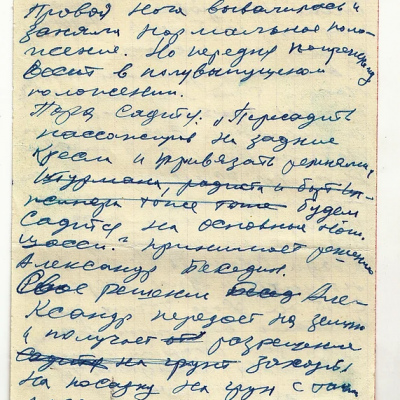 правая нога вывалилась и
заняла нормальное поло-
жение. Но передняя по-прежнему
висит в полувыпущенном
положении.
Пора садить: "Пересадить
пассажиров на задние
кресла и привязать ремнями,
Штурмана, радиста и бортин-
женера тоже тоже будем
садить на основные ноги
шасси." принимает решение
Александр Бекедин.
Свое решение Алек-
ксандр передает на землю
и получает разрешение
садить на грунт заходить
на посадку на грун с